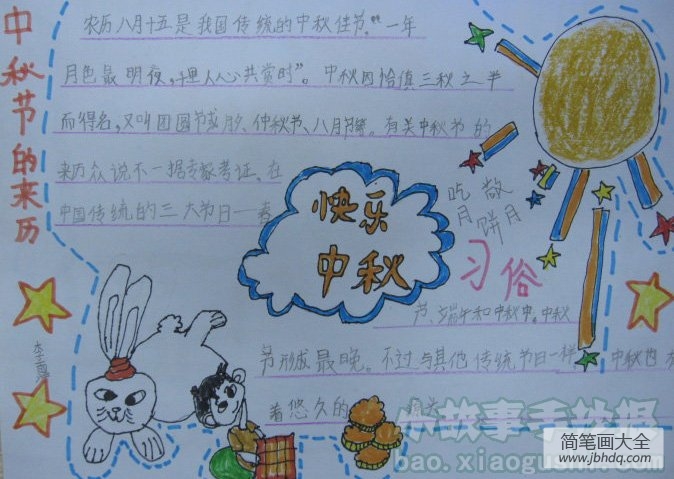 中秋节的来历
农历八月十五是我国传统的中秋佳节。“一年
月色最明夜,千里人心共赏时”。中秋因恰值三秋之半
而得名,又叫团圆节或月夕、仲秋节、八月节等。有关中秋节的
来历众说不一据专家考证、在
中国传统的三大节日—春
快乐
中秋
吃月饼
敬月
习俗
节、端午和中秋中。中秋
节形成最晚。不过与其他传统节日一样,中秋也有
着悠久的
小故事手抄报
bao.xiaogushi.com
简笔画大全
www.jbhdq.com